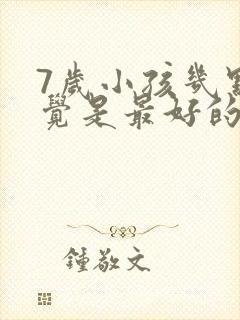 7歲小孩幾點
覺是最好的
鍾敬文